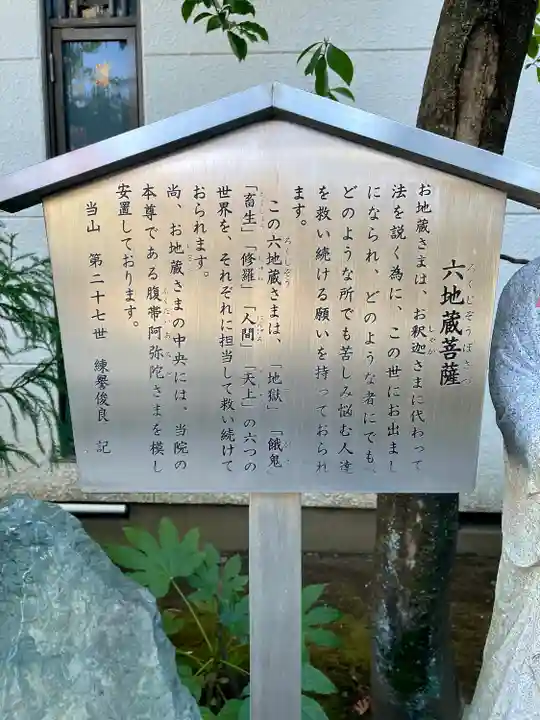 六地蔵菩薩
お地蔵さまは、お釈迦さまに代わって
法を説く為に、この世にお出まし
になられ、どのような者にでも、
どのような所でも苦しみ悩む人達
を救い続ける願いを持っておられ
ます。
この六地蔵さまは、「地獄」「餓鬼」
「畜生」「修羅」「人間」「天上」の六つの
世界を、それぞれに担当して救い続けて
おられます。
尚、お地蔵さまの中央には、当院の
本尊である腹帯阿弥陀さまを模し
安置しております。
当山 第二十七世 練誉俊良 記